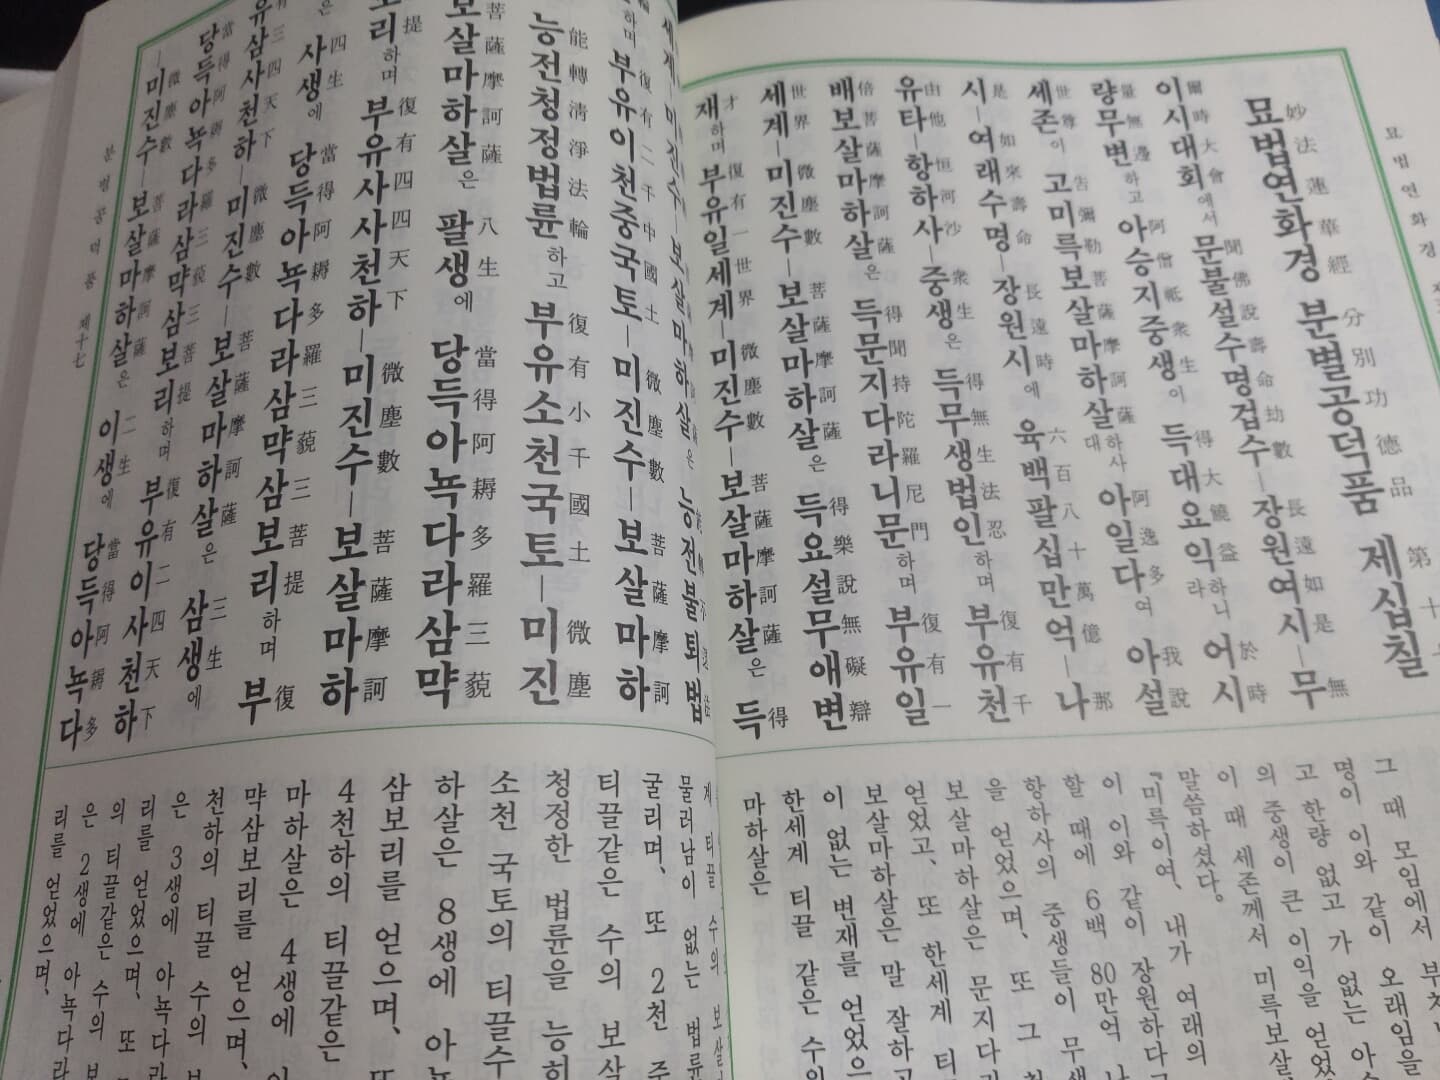 묘법연화경
妙法蓮華經 分別功德品 第十
묘법연화경 분별공덕품 제십칠
爾時大會 聞佛說壽命劫數 長遠如是 無
이시대회에서 문불설수명겁수ㅣ장원여시ㅣ무
量無邊 阿僧祇衆生 得大饒益 於時
량무변하고 아승지중생이 득대요익하니라 어시
世尊 告彌勒菩薩摩訶薩 阿逸多 我說
세존이 고미륵보살마하살하사대 아일다여 아설
是 如來壽命 長遠時 六百八十萬億 那
시ㅣ여래수명ㅣ장원시에 육백팔십만억ㅣ나
由他 恒河沙 衆生 得無生法忍 復有千
유타ㅣ항하사ㅣ중생은 득무생법인하며 부유천
倍菩薩摩訶薩 得聞持陀羅尼門 復有一
배보살마하살은 득문지다라니문하며 부유일
世界 微塵數 菩薩摩訶薩 得樂說無礙辯
세계ㅣ미진수ㅣ보살마하살은 득요설무애변
才 復有一世界 微塵數 菩薩摩訶薩 得
재하며 부유일세계ㅣ미진수ㅣ보살마하살은 득
그 때 모임에서 부처
명이 이와 같이 오래임을
고 한량 없고 가 없는 아
의 중생이 큰 이익을 얻었
이 때 세존께서 미륵보살
말씀하셨다.
『미륵이여, 내가 여래의
이 이와 같이 장원하다고
할 때에 6백 80만억 나
항하사의 중생들이 무생
을 얻었으며, 또 그
보살마하살은 문지다라
얻었고, 또 한세계 티
보살마하살은 말 잘하고
이 없는 변재를 얻었으
한세계 티끌 같은 수의
마하살은
세계ㅣ미진수ㅣ보살마하살은 능전불퇴법
復有二千中國土 微塵數 菩薩摩訶
하며 부유이천중국토ㅣ미진수ㅣ보살마하
能轉淸淨法輪 復有小千國土 微塵
능전청정법륜하고 부유소천국토ㅣ미진
菩薩摩訶薩 八生 當得阿耨多羅三藐
보살마하살은 팔생에 당득아뇩다라삼먁
提 復有四四天下 微塵數 菩薩摩訶
리하며 부유사사천하ㅣ미진수ㅣ보살마하
四生 當得阿耨多羅三藐三菩提 復
은 사생에 당득아뇩다라삼먁삼보리하며 부
有三四天下 微塵數 菩薩摩訶薩 三生
유삼사천하ㅣ미진수ㅣ보살마하살은 삼생에
當得阿耨多羅三藐三菩提 復有二四天下
당득아뇩다라삼먁삼보리하며 부유이사천하
微塵數 菩薩摩訶薩 二生 當得阿耨多
ㅣ미진수ㅣ보살마하살은 이생에 당득아뇩다
물러남이 없는 법륜
굴리며, 또 2천 중
티끌같은 수의 보살
청정한 법륜을 능히
소천 국토의 티끌수
하살은 8생에 아뇩
삼보리를 얻으며, 또
4천하의 티끌같은
마하살은 4생에 아
먁삼보리를 얻으며,
천하의 티끌 수의 보
은 3생에 아뇩다라
리를 얻었으며, 또
의 티끌같은 수의 보
은 2생에 아뇩다라
리를 얻었으며,
분별공덕품 제十七